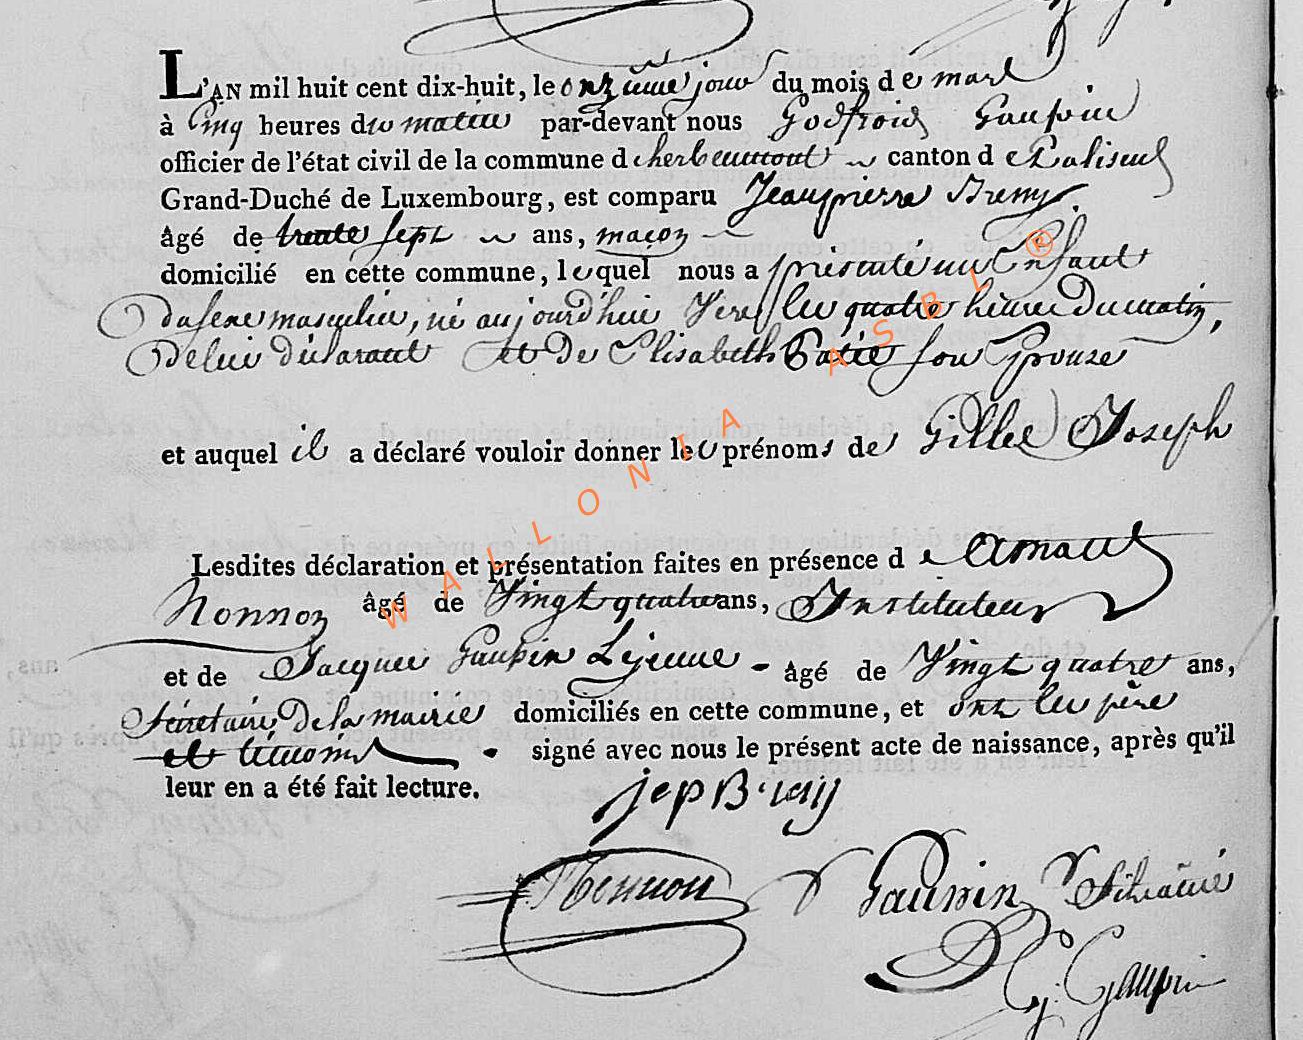 L'AN mil huit cent dix-huit, le onzième jour du mois de mars
à Cinq heures du matin par-devant nous Godfroid Gaupin
officier de l'état civil de la commune d'herbeumont canton de Paliseul
Grand-Duché de Luxembourg, est comparu Jeanpierre Bremy
âgé de trente sept ans, maçon
domicilié en cette commune, lequel nous a présenté un Enfant
Du sexe masculin, né aujourd'hui vers les quatre heures Du matin,
De lui déclarant et De Elisabeth son Epouse
et auquel il a déclaré vouloir donner les prénoms de Gilles Joseph
Lesdites déclaration et présentation faites en présence de Arnault
Nonnon âgé de Vingt quatre ans, Instituteur
et de Jacques Gaupin Lejeune - âgé de Vingt quatre ans,
Sécretaire De la mairie domiciliés en cette commune, et ont les père
et témoins signé avec nous le présent acte de naissance, après qu'il
leur en a été fait lecture.
Nonnon Gaupin
G. Gaupin
WALLONIA ASBL ®